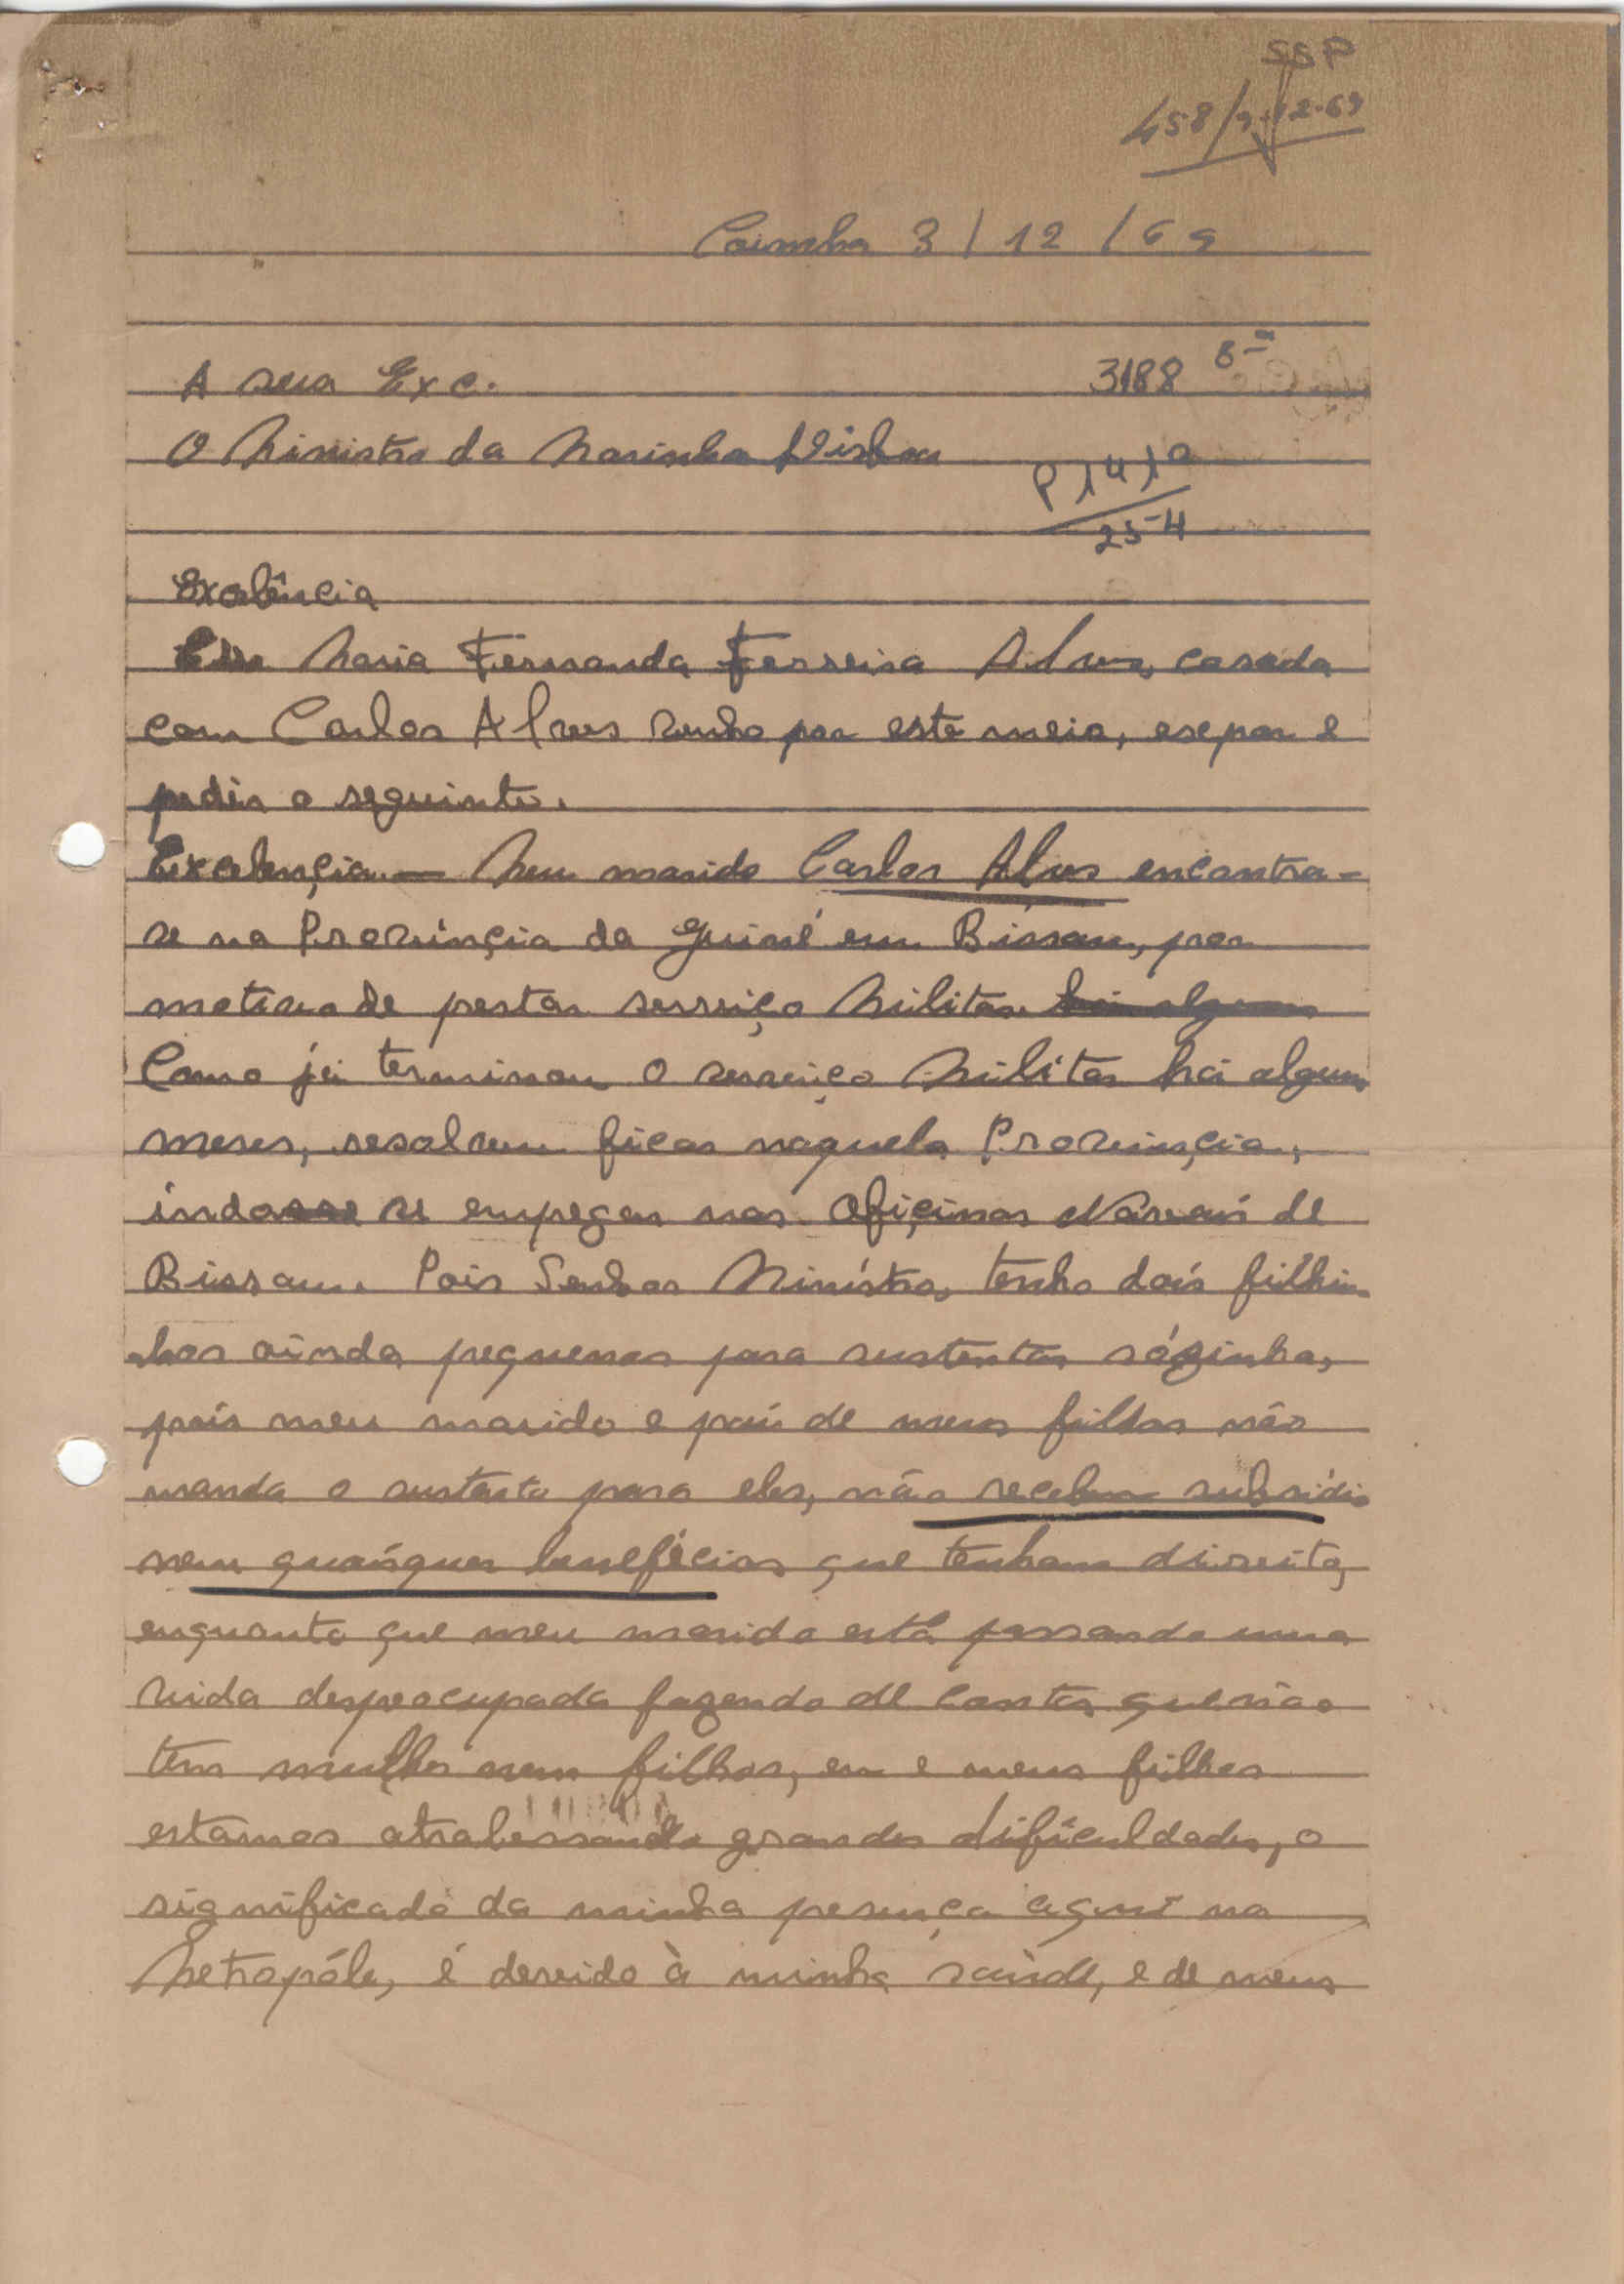 SSP
458/9-12-69
Coimbra 3/12/69
A sua Exc. 3188 B-
O Ministro da Marinha Lisboa
P 1410
25-4
Excelência
Eu Maria Fernanda Ferreira Alves, casada
com Carlos Alves venho por este meio, expor e
pedir o seguinte.
Excelençia — Meu marido Carlos Alves encontra-
se na Provínçia da Guiné em Bissau, por
motivo de prestar serviço Militar. há alguns
Como já terminou o serviço Militar há alguns
meses, resolveu ficar naquela Provinçia,
indo se empegar nas Ofiçinas Navais de
Bissau. Pois Senhor Minístro, tenho doís filhi-
nhos aínda pequenos para sustentar sózinha,
poís meu marido e paí de meus filhos não
manda o sustento para eles, não recebem subsídio
nem quaísquer benefícios que tenham direito,
enquanto que meu marido está passando uma
vida despreocupada fazendo de conta, que não
tem mulher nem filhos, eu e meus filhos
estamos atrabessando grandes dificuldades, o
significado da minha presença aquí na
Metropóle, é devido à minha saúde, e de meus